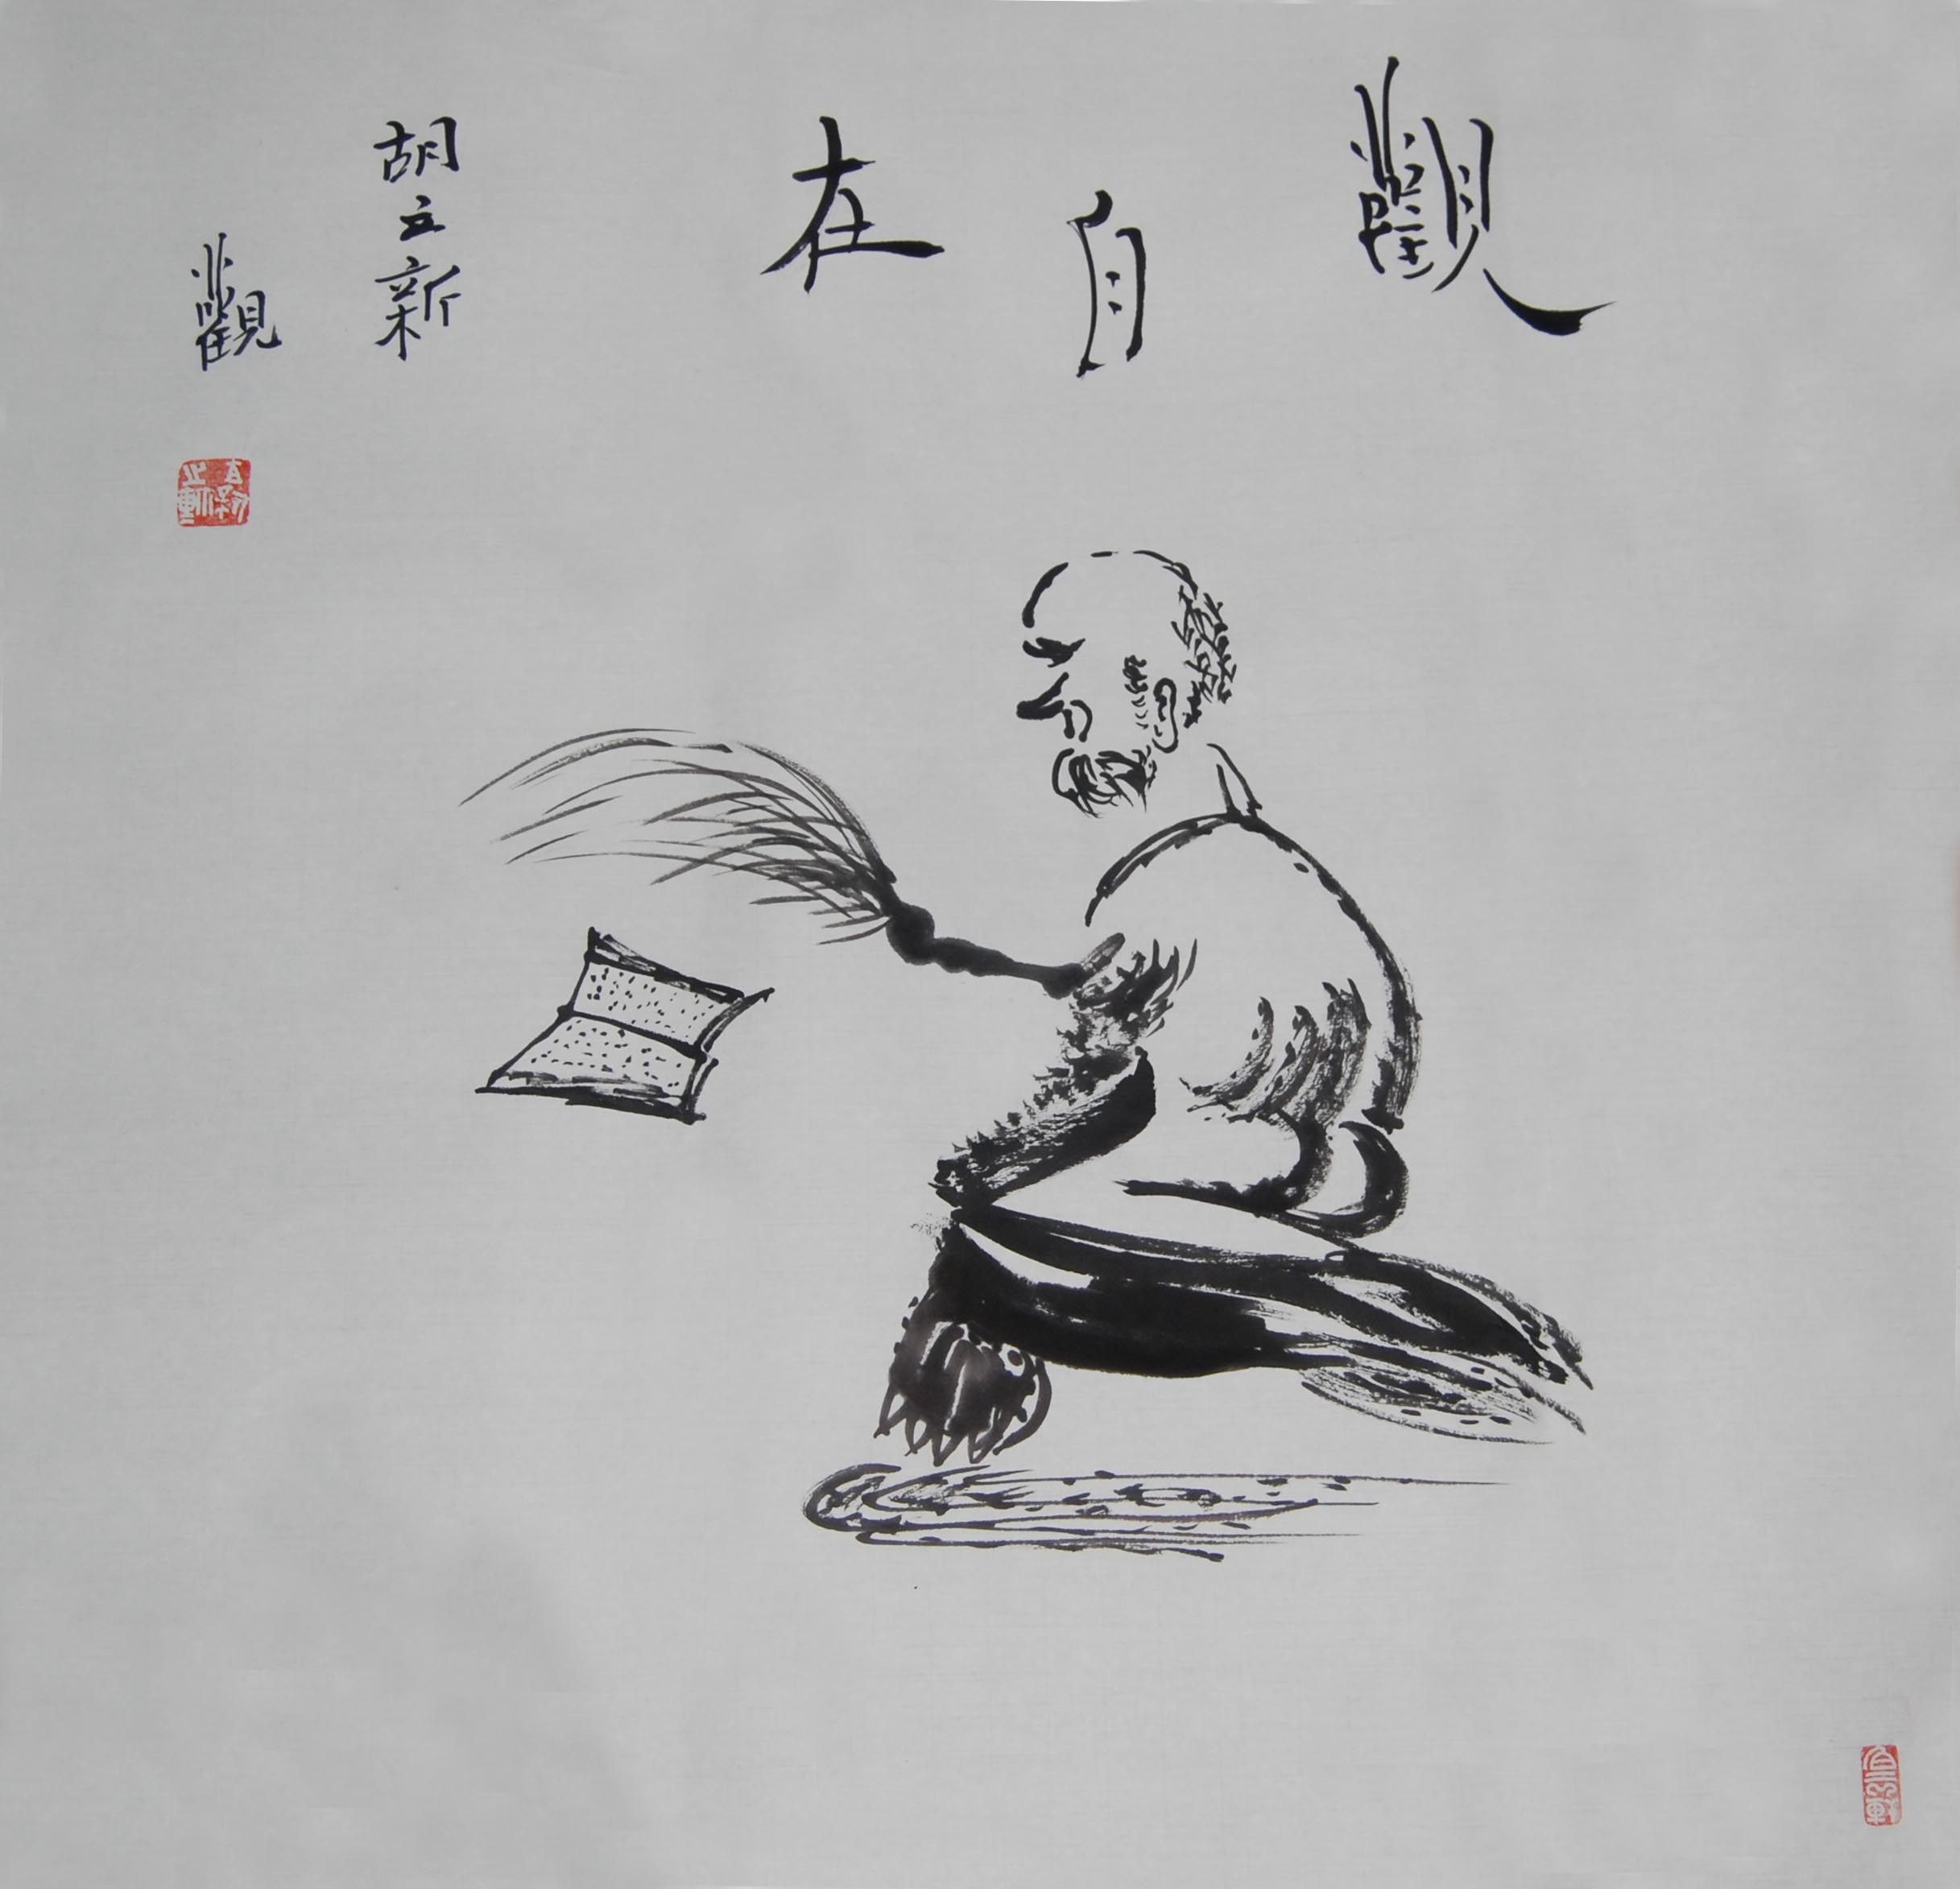 觀自在
胡立新
觀